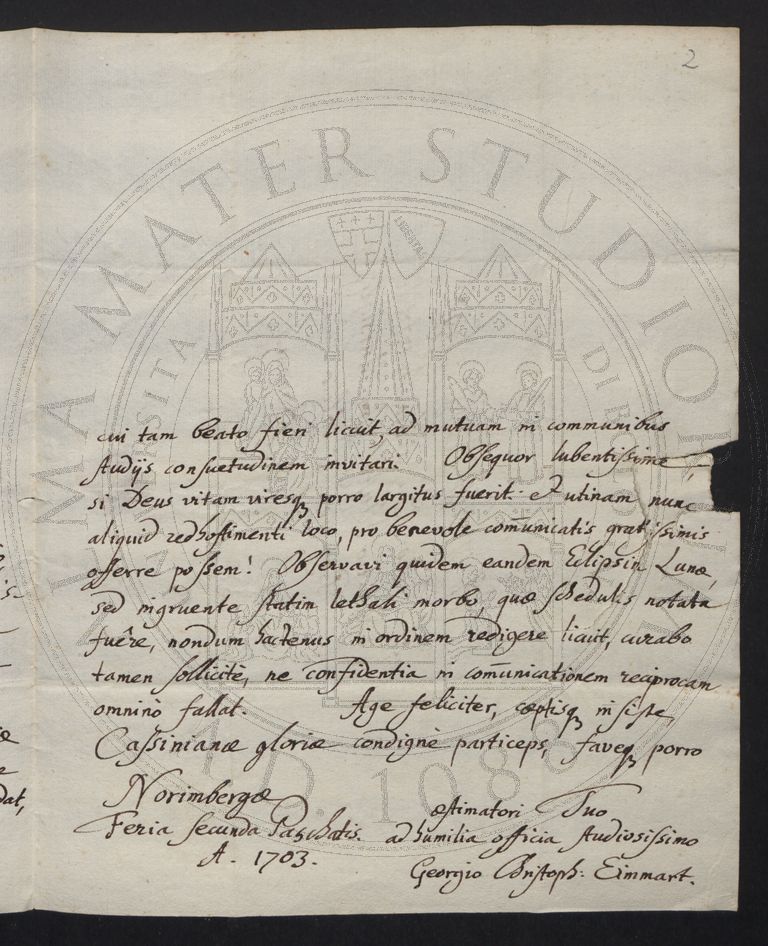 2
cui tam beato fieri licuit, ad mutuam in communibus
studijs consuetudinem invitari. Obsequor lubentissime,
si Deus vitam viresq porro largitus fuerit: et utinam nunc
aliquid redhostimenti loco, pro benevole com̄unicatis gratissimis
offerre possem! Observavi quidem eandem Eclipsin Lunæ,
sed ingruente statim lethali morbo, quæ schedulis notata
fuêre, nondum hactenus in ordinem redigere licuit, curabo
tamen sollicitè, ne confidentia in com̄unicationem reciprocam
omninò fallat. Age feliciter, cæptisq insiste,
Cassinianæ gloriæ condignè particeps, faveq porro
Norimbergæ
Feria secunda Paschatis.
A. 1703.
æstimatori Tuo
ad humilia officia studiosissimo
Georgio Christoph: Eimmart.
ALMA MATER STUDIORUM
A.D. 1088
LIBERTAS